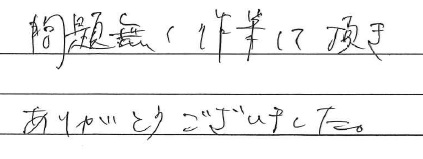 問題無く作業して頂き
ありがとうございました。